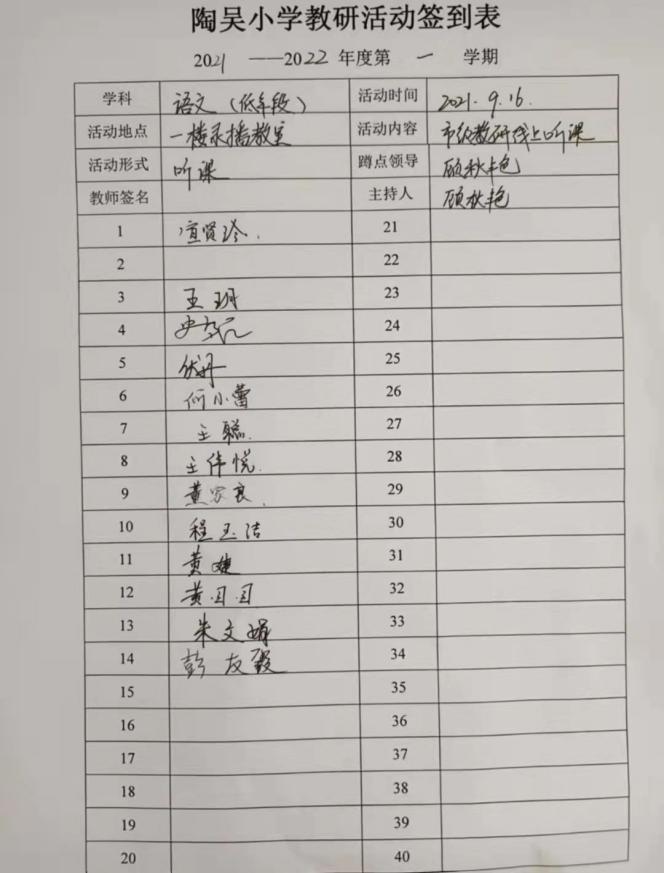 陶吴小学教研活动签到表
2021 ——2022 年度第 一 学期
学科 语文（低年段） 活动时间 2021.9.16.
活动地点 一楼录播教室 活动内容 市级教研线上听课
活动形式 听课 蹲点领导 顾秋艳
教师签名 主持人 顾秋艳
1 宣贤玲. 21
2 22
3 王玥 23
4 24
5 伏丹 25
6 何小蕾 26
7 王聪. 27
8 王伟悦. 28
9 黄家良. 29
10 程玉洁 30
11 黄婕 31
12 黄月月 32
13 朱文娟 33
14 彭友毅 34
15 35
16 36
17 37
18 38
19 39
20 40